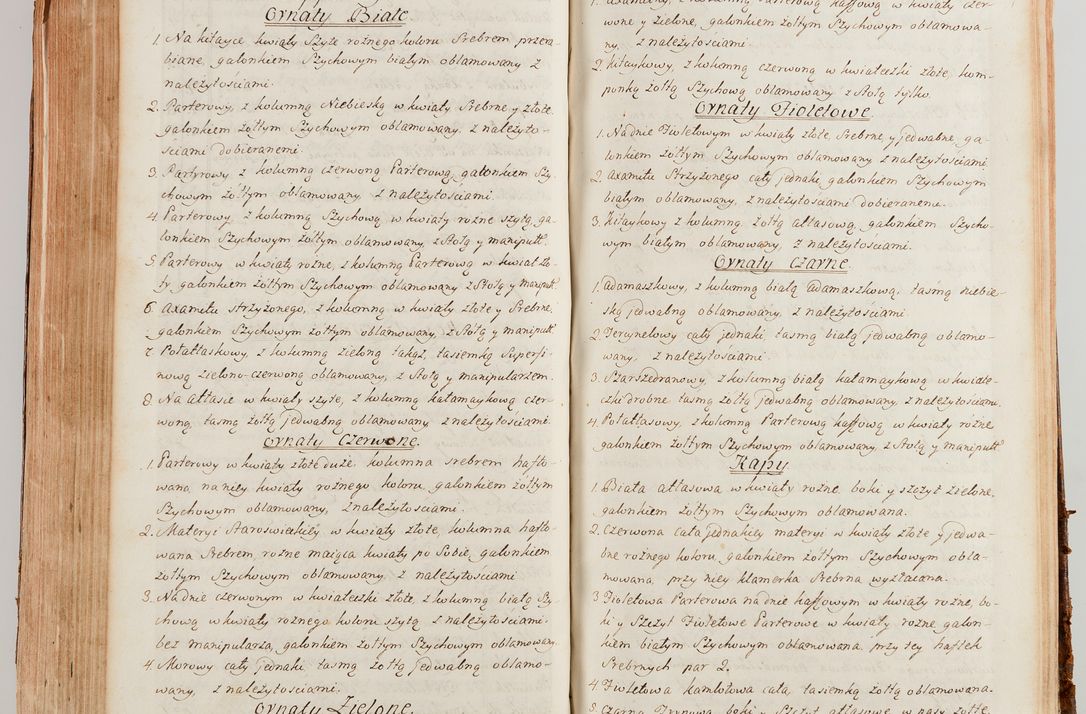 Ornaty Białe
1. Na kitayce kwiaty szyte rożnego koloru Srebrem przera-
biane, galonkiem Szychowym białym oblamowany z
należytościami.
2. Parterowy, z kolumną Niebieską w kwiaty srebrne y złote
galonkiem żołtym Szychowym oblamowany, z należyto-
sciami dobieranemi.
3. Partyrowy z kolumną czerwoną Parterową, galonkiem Szy-
chowym żołtym oblamowany, z należytościami.
4 Parterowy, z kolumną Szychową w kwiaty rożne szytą, ga-
lonkiem Szychowym żołtym oblamowany, z Stołą y manipult.
5 Parterowy w kwiaty rożne, z kolumną Parterową w kwiat zło-
ty, galonkiem żołtym Szychowym oblamowany z Stołą y manipult
6. Axamitu strzyżonego, z kolumną w kwiaty złote y Srebrne
galonkiem Szychowym żołtym oblamowany, z Stołą y manipult
7. Połatłaskowy, z kolumną zieloną takąż, tasiemką Superfi-
nową zielono-czerwoną oblamowany, z Stołą y manipularzem.
8. Na attasie w kwiaty szyte, z kolumną kałamaykową czer-
woną, tasmą żołtą jedwabną oblamowany z należytościami.
Ornaty Czerwone.
1. Parterowy w kwiaty złote duże, kolumna srebrem hafto-
wana, na niey kwiaty rożnego koloru, galonkiem żołtym
Szychowym oblamowany, z należytościami.
2. Materyi Staroswieckiey w kwiaty złote, kolumna hafto-
wana Srebrem, rożne maiąca kwiaty po Sobie, galonkiem
żołtym Szychowym oblamowany, z należytościami
3. Na dnie czerwonym w kwiateczki złote, z kolumną białą Szy-
chową w kwiaty rożnego koloru szytą, z należytościami
bez manipularza, galonkiem żołtym Szychowym oblamowany
4. Morowy cały jednaki, tasmą żołtą jedwabną oblamo-
wany, z należytościami.
Ornaty Zielone.
1. Axamitny, z kolumną Parterową kaffową w kwiaty czer-
wone y zielone, galonkiem żołtym Szychowym oblamowa-
ny, z należytościami.
2. kitaykowy, z kolumną czerwoną w kwiateczki złote, kom-
ponką żołtą Szychową oblamowany z Stołą tylko.
Ornaty Fioletowe
1. Na dnie Fioletowym w kwiaty złote, Srebrne, y jedwabne, ga-
lonkiem żołtym Szychowym oblamowany z należytościami
2. Axamitu Strzyżonego cały jednaki, galonkiem Szychowym
białym oblamowany, z należytościami dobieranemi.
3. kitaykowy z kolumną żołtą attasową, galonkiem Szycho-
wym białym oblamowany, z należytościami.
Ornaty Czarne.
1. Adamaszkowy, z kolumną białą Adamaszkową, tasmą niebie-
ską jedwabną oblamowany, z należytościami
2. Tercynelowy cały jednaki, tasmą białą jedwabną oblamo-
wany, z należytościami.
3. Szarszedranowy, z kolumną białą kałamaykową w kwiate-
czki drobne, tasmą żołtą jedwabną oblamowany, z należytościami
4. Połatłasowy, z kolumną Parterową kaffową w kwiaty rożne
galonkiem żołtym Szychowym oblamowany, z Stołą y manipult
Kapy
1. Biała attasowa w kwiaty rożne, boki y szczyt zielone,
galonkiem żołtym Szychowym oblamowana.
2. Czerwona cała jednakiey materyi w kwiaty złote y jedwa-
bne rożnego koloru, galonkiem żołtym Szychowym obla-
mowana, przy niey klamerka Srebrna wyzłacana.
3 Fioletowa Parterowa na dnie kaffowym w kwiaty rożne, bo-
ki y Szczyt Fioletowe Parterowe w kwiaty rożne galon-
kiem białym Szychowym oblamowana, przy tey haftek
Srebrnych par 2.
4 Fioletowa kamlotowa cała, tasiemką żołtą oblamowana.
5 Czarna boki y Szczyt attasowe w pasy żołte